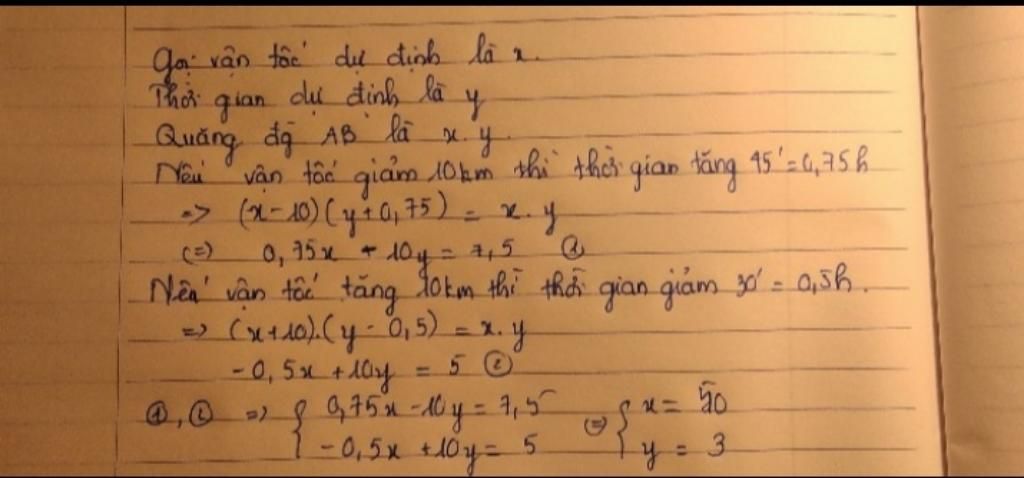 Gọi vận tốc dự định là x.
Thời gian dự định là y
Quãng đg AB là x.y
Nếu vận tốc giảm 10km thì thời gian tăng 45' = 0,75h
=> (x-10)(y+0,75) = x.y
(=) 0,75x - 10y = 7,5 ①
Nếu vận tốc tăng 10km thì thời gian giảm 30' = 0,5h.
=> (x+10).(y-0,5) = x.y
-0,5x +10y = 5 ②
①,② => { 0,75x -10y = 7,5 (=) { x = 50
-0,5x +10y = 5 y = 3